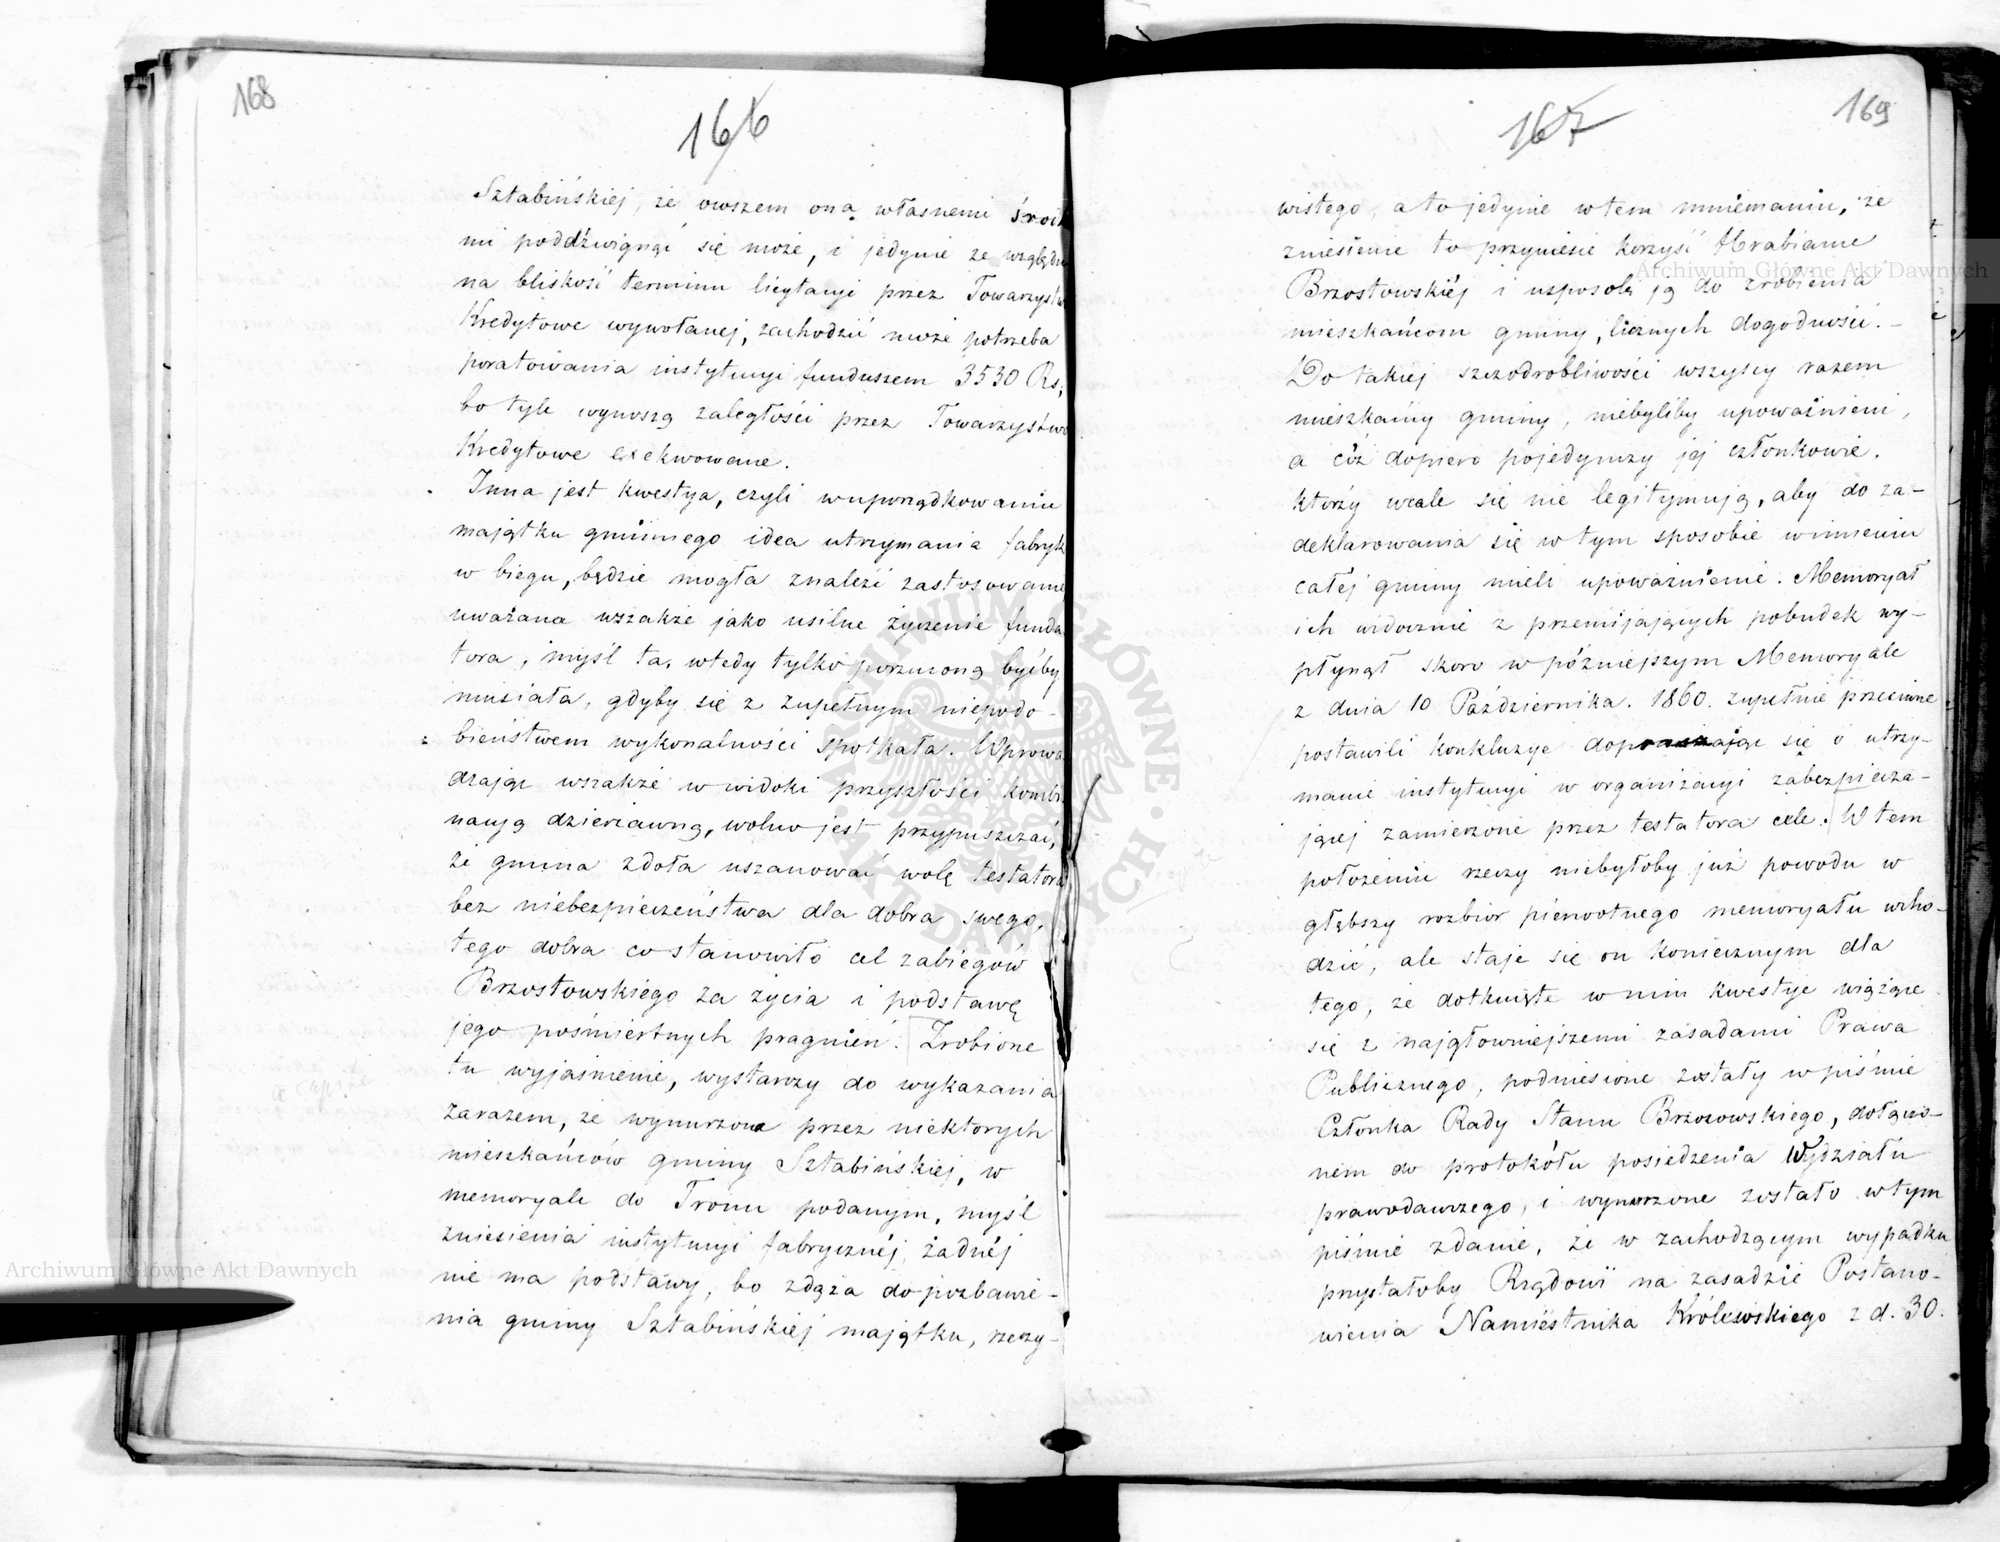 168
166
Sztabińskiej, że owszem ona własnemi środ
mi poddźwignąć się może, i jedynie ze względu
na bliskość terminu licytacyi przez Towarzystw
Kredytowe wywołanej, zachodzić może potrzeba
poratowania instytucyi funduszem 3530 Rs,
bo tyle wynoszą zaległości przez Towarzystwo
Kredytowe exekwowane.
Inna jest kwestya, czyli w uporządkowaniu
majątku gminnego idea utrzymania fabryk
w biegu, będzie mogła znaleźć zastosowanie
uważana wszakże jako usilne życzenie funda
tora, myśl ta, wtedy tylko porzuconą byćby
musiała, gdyby się z zupełnym niepodo-
bieństwem wykonalności spotkała. Wprowa
dzając wszakże w widoki przyszłości kombi
nacyą dzierżawną, wolno jest przypuszczać,
że gmina zdoła uszanować wolę testatora
bez niebezpieczeństwa dla dobra swego,
tego dobra co stanowiło cel zabiegów
Brzostowskiego za życia i podstawę
jego pośmiertnych pragnień. Zrobione
tu wyjaśnienie, wystarczy do wykazania
zarazem, że wynurzona przez niektorych
mieszkańców gminy Sztabińskiej, w
memoryale do Tronu podanym, myśl
zniesienia instytucyi fabrycznéj, żadnéj
nie ma podstawy, bo zdąża do pozbawie-
nia gminy Sztabińskiej majątku, rzeczy-
169
167
wistego, a to jedynie w tem mniemaniu, że
zniesienie to przyniesie korzyść Hrabiance
Brzostowskiéj i usposobi ją do zrobienia
mieszkańcom gminy, licznych dogodności. -
Do takiej szczodrobliwości wszyscy razem
mieszkańcy gminy, niebyliby upoważnieni,
a cóż dopiero pojedynczy jej członkowie,
którzy wcale się nie legitymują, aby do za-
deklarowania się w tym sposobie w imieniu
całej gminy mieli upoważnienie. Memoryał
ich widocznie z przemijających pobudek wy-
płynął skoro w późniejszym Memoryale
z dnia 10 Października. 1860. zupełnie przeciwne
postawili konkluzye dopraszając się o utrzy-
manie instytucyi w organizacyi zabezpiecza-
jącej zamierzone przez testatora cele. W tem
położeniu rzeczy niebyłoby już powodu w
głębszy rozbiór pierwotnego memoryału wcho-
dzić, ale staje się on koniecznym dla
tego, że dotknięte w nim kwestye wiążące
się z najgłowniejszemi zasadami Prawa
Publicznego, podniesione zostały w piśmie
Członka Rady Stanu Brzozowskiego, dołączo-
nem do protokółu posiedzenia Wydziału
prawodawczego, i wynurzone zostało w tym
piśmie zdanie, że w zachodzącym wypadku
przystałoby Rządowi na zasadzie Postano-
wienia Namiestnika Królewskiego z d. 30.
Archiwum Główne Akt Dawnych
Archiwum Główne Akt Dawnych
ARCHIWUM GŁÓWNE AKT DAWNYCH